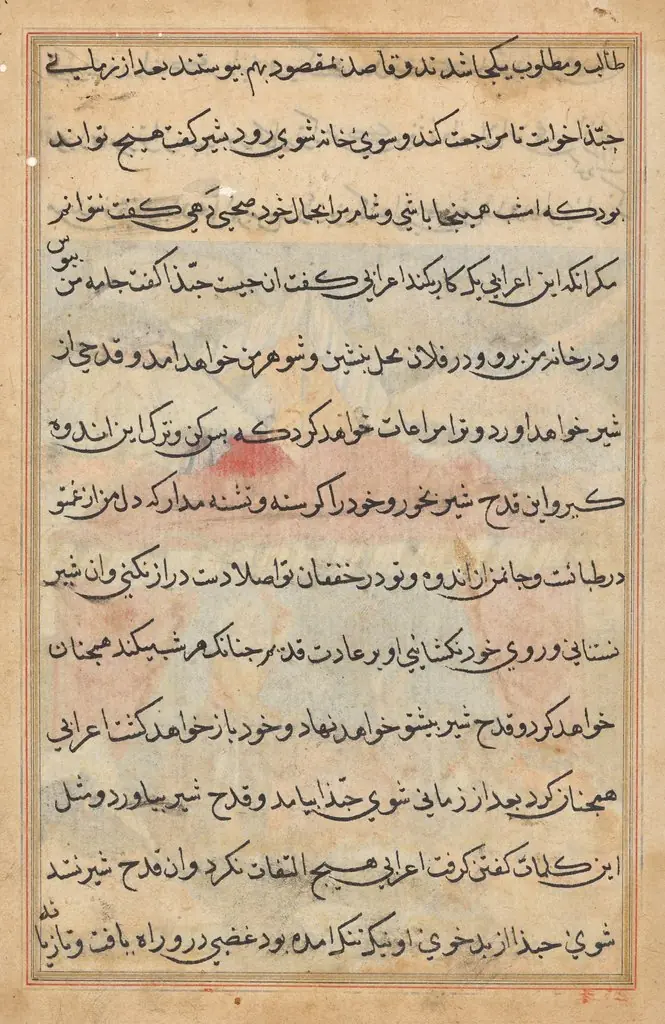 طالب و مطلوب یکجا شدند و قاصد بمقصود بهم پیوستند بعد از زمانی
حبّذا خواست تا مراجعت کند و سوی خانه شوی رود بشیر کفت هیچ تواند
بود که امشب همینجا باشی و شام مرا بجمال خود صحبی دهی کفت نتوانم
مکر انکه این اعرابی یک کار بکند اعرابی کفت ان چیست حبّذا کفت جامه من بپوش
و در خانه من برو و در فلان محل بنشین و شوهر من خواهد امد و قدحی از
شیر خواهد اورد و ترا مراعات خواهد کرد که بس کن و ترک این اندوه
کیر و این قدح شیر بخور و خود را کرسنه و تشنه مدار که دل من از غم تو
در طپانست و جانم از اندوه و تو در خفقان تو اصلا دست دراز نکنی و ان شیر
نستانی و روی خود نکشایی او بر عادت قدیم چنانک هر شب میکند همچنان
خواهد کرد و قدح شیر پیش تو خواهد نهاد و خود باز خواهد کشت اعرابی
همچنان کرد بعد از زمانی شوی حبّذا بیامد و قدح شیر بیاورد و مثل
این کلمات کفتن کرفت اعرابی هیچ التفات نکرد و ان قدح شیر نستد
شوی حبذا از بدخوی او نیک تنک امده بود غضبی در و راه یافت و تازیانه